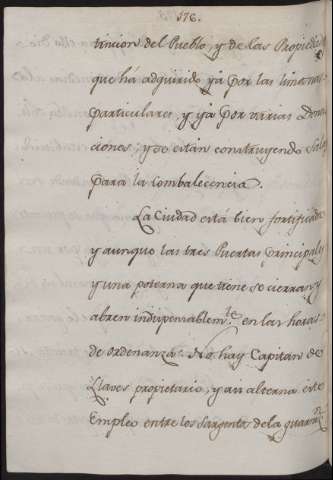 176.
tincion del Pueblo, y de las Propiedad
que há adquirido yá por las limosnas
particulares, y yá por varias Dona
ciones; y se están construyendo Salas
para la combalecencia.
La Ciudad está bien fortificada
y aunque las tres Puertas principales
y una poterna que tiene se cierran y
abren indispensablem.te en las horas
de ordenanza. No hay Capitan de
Llaves propietario, y asi alterna este
Empleo entre los Sargentos de la guarn.n